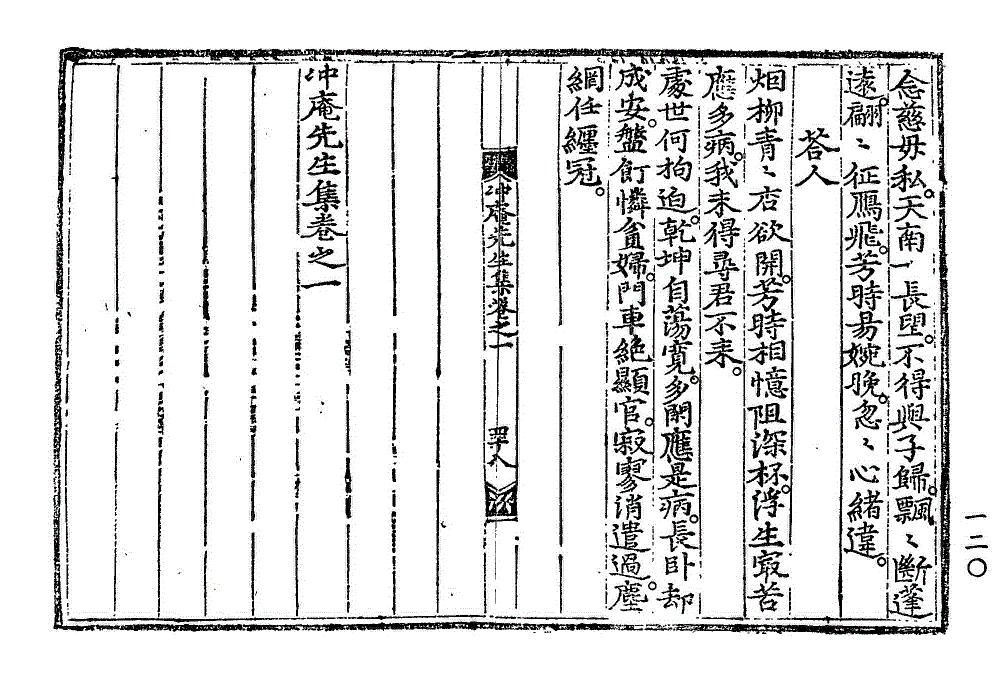 念慈毋私。天南一長望。不得與子歸。飄〻斷蓬
遠。翩〻征鴈飛。芳時易婉晚。忽〻心緖違。
答人
烟柳青〻杏欲開。芳時相憶阻深杯。浮生㝡苦
應多病。我来得尋君不来。
處世何拘迫。乾坤自蕩寬。多閑應是病。長卧却
成安。盤飣憐貧婦。門車絶顯官。寂寥消遣過。塵
網任纏冠。
冲庵先生集卷之一
四十八
冲庵先生集卷之一
一二〇